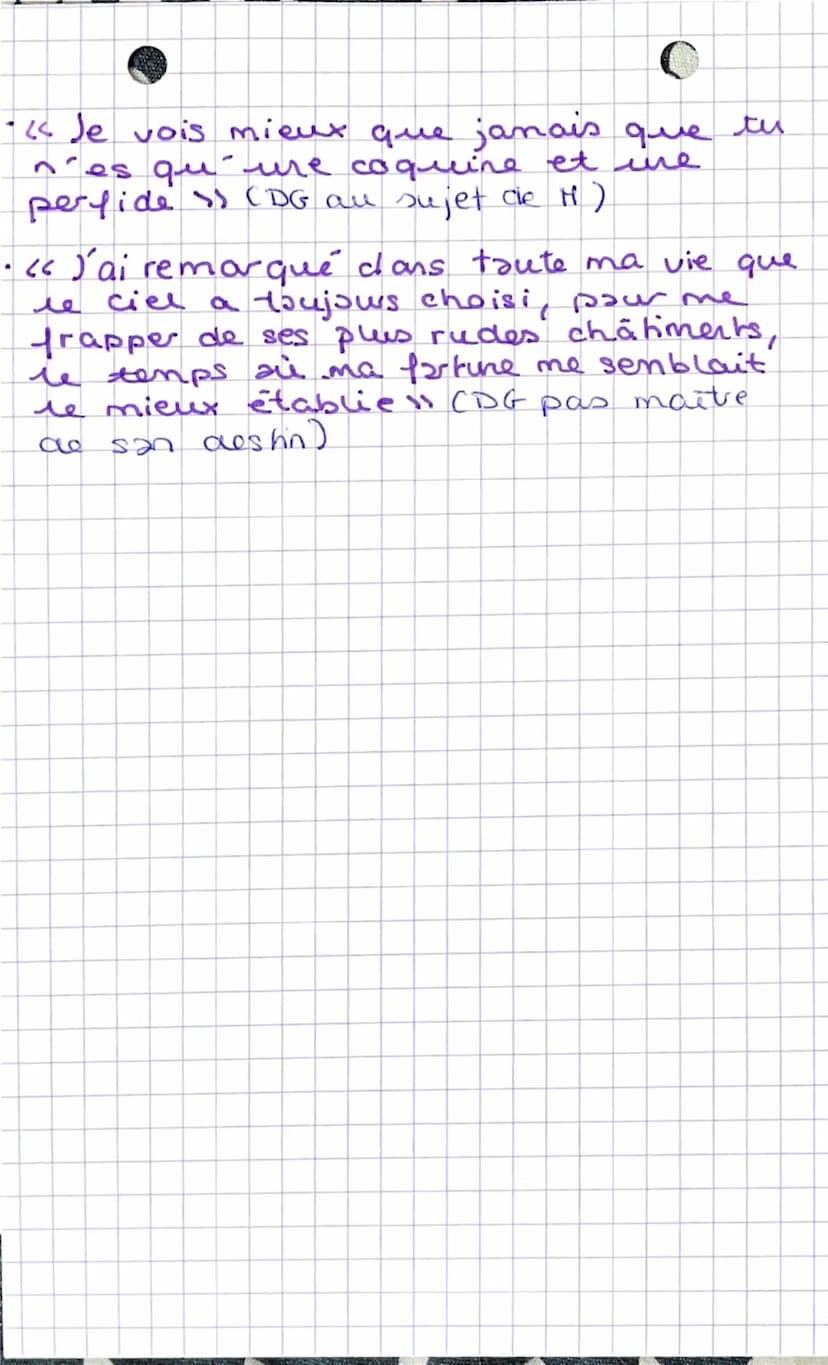 · « Je vois mieux que jamais que tu
n'es qu'une coquine et une
perfide » (DG au sujet de M)
· « J'ai remarqué dans toute ma vie que
le ciel a toujours choisi, pour me
frapper de ses plus rudes châtiments,
le temps où ma fortune me semblait
le mieux établie » (DG pas maître
de son destin)